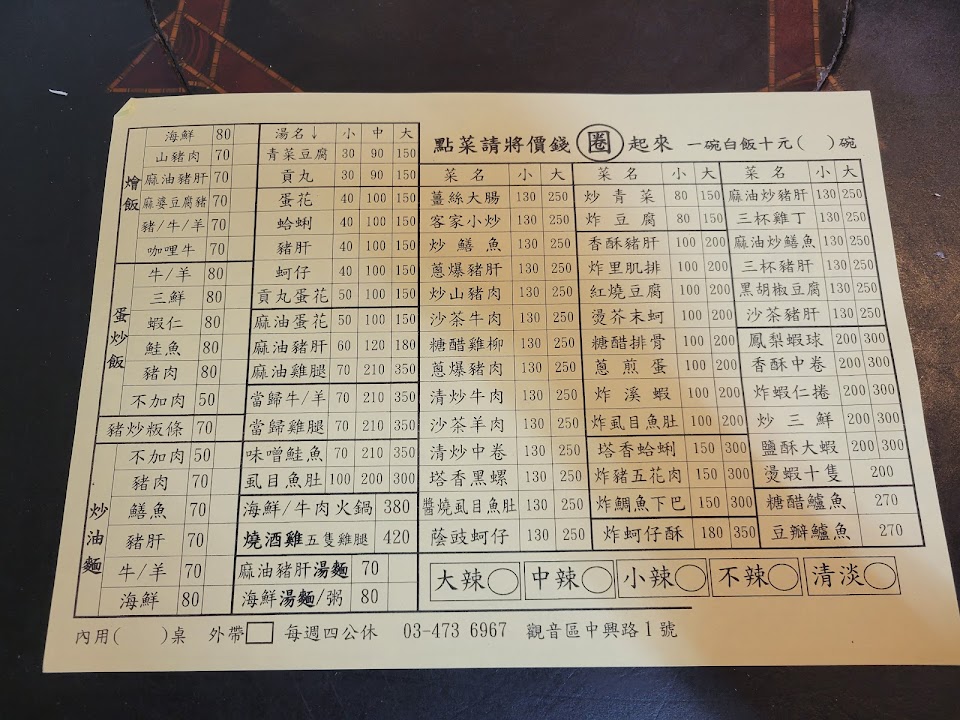 點菜請將價錢 圈 起來 一碗白飯十元( )碗
燴飯
海鮮 80
山豬肉 70
麻油豬肝 70
麻婆豆腐豬 70
豬/牛/羊 70
咖哩牛 70
蛋炒飯
牛/羊 80
三鮮 80
蝦仁 80
鮭魚 80
豬肉 80
不加肉 50
豬炒粄條 70
炒油麵
不加肉 50
豬肉 70
鱔魚 70
豬肝 70
牛/羊 70
海鮮 80
湯名↓ 小 中 大
青菜豆腐 30 90 150
貢丸 30 90 150
蛋花 40 100 150
蛤蜊 40 100 150
豬肝 40 100 150
蚵仔 40 100 150
貢丸蛋花 50 100 150
麻油蛋花 50 100 150
麻油豬肝 60 120 180
麻油雞腿 70 210 350
當歸牛/羊 70 210 350
當歸雞腿 70 210 350
味噌鮭魚 70 210 350
虱目魚肚 100 200 300
海鮮/牛肉火鍋 380
燒酒雞五隻雞腿 420
麻油豬肝湯麵 70
海鮮湯麵/粥 80
菜名 小 大
薑絲大腸 130 250
客家小炒 130 250
炒鱔魚 130 250
蔥爆豬肝 130 250
炒山豬肉 130 250
沙茶牛肉 130 250
糖醋雞柳 130 250
蔥爆豬肉 130 250
清炒牛肉 130 250
沙茶羊肉 130 250
清炒中卷 130 250
塔香黑螺 130 250
醬燒虱目魚肚 130 250
蔭豉蚵仔 130 250
菜名 小 大
炒青菜 80 150
炸豆腐 80 150
香酥豬肝 100 200
炸里肌排 100 200
紅燒豆腐 100 200
燙芥末蚵 100 200
糖醋排骨 100 200
蔥煎蛋 100 200
炸溪蝦 100 200
炸虱目魚肚 100 200
塔香蛤蜊 150 300
炸豬五花肉 150 300
炸鯛魚下巴 150 300
炸蚵仔酥 180 350
菜名 小 大
麻油炒豬肝 130 250
三杯雞丁 130 250
麻油炒鱔魚 130 250
三杯豬肝 130 250
黑胡椒豆腐 130 250
沙茶豬肝 130 250
鳳梨蝦球 200 300
香酥中卷 200 300
炸蝦仁捲 200 300
炒三鮮 200 300
鹽酥大蝦 200 300
燙蝦十隻 200
糖醋鱸魚 270
豆瓣鱸魚 270
大辣 中辣 小辣 不辣 清淡
內用( )桌 外帶 每週四公休 03-473 6967 觀音區中興路1號